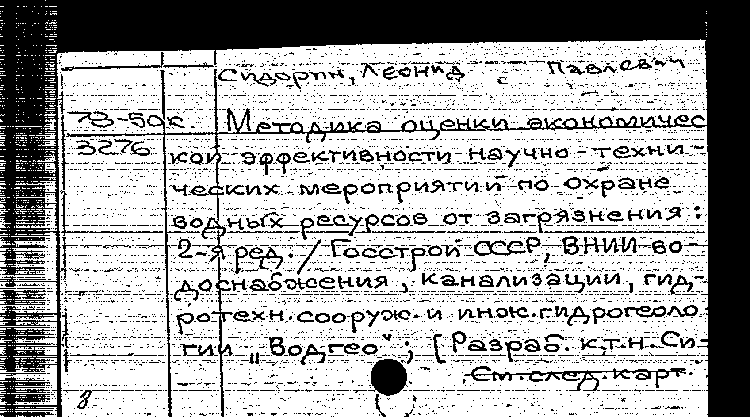 Сидорин, Леонид Павлевич
78-50к. Методика оценки экономичес
3276 кой эффективности научно-техни-
ческих мероприятий по охране
водных ресурсов от загрязнения:
2-я ред. / Госстрой СССР, ВНИИ во-
доснабжения, канализации, гид-
ротехн. сооруж. и инж. гидрогеоло
гии „Водгео“; [Разраб. к.т.н. Си-
См. след. карт.
8